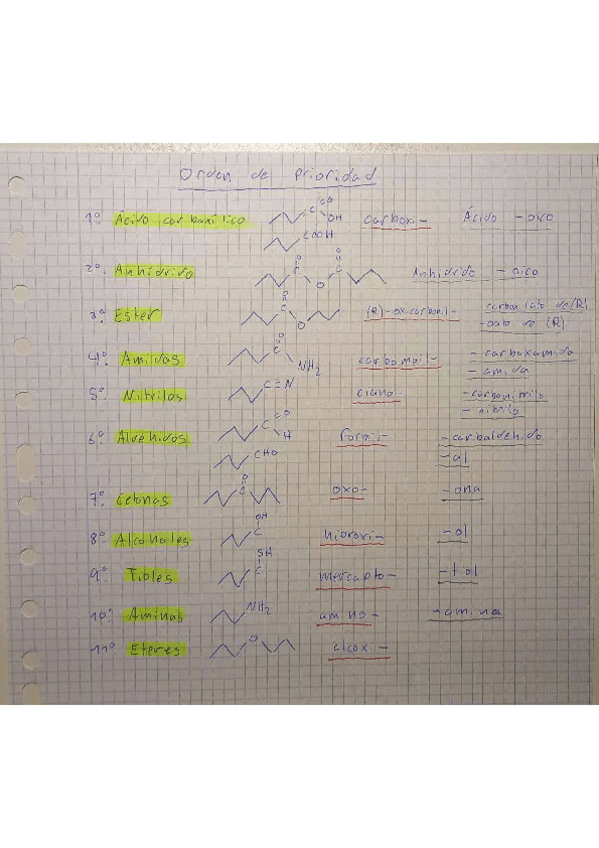 Orden de prioridad
1º. Ácido carboxílico C O OH carboxi- Ácido -oico
COOH
2º. Anhídrido C O O C O Anhídrido -oico
3º. Ester C O O (R)-oxicarbonil- carboxilato de (R)
-oato de (R)
4º. Amidas C O NH2 carbamoil- -carboxamida
-amida
5º. Nitrilos C≡N ciano- -carbonitrilo
-nitrilo
6º. Aldehidos C O H formil- -carbaldehido
CHO -al
7º. Cetonas C O oxo- -ona
8º. Alcoholes OH C hidroxi- -ol
9º. Tioles SH C mercapto- -tiol
10º. Aminas NH2 amino- -amina
11º. Eteres O alcoxi-